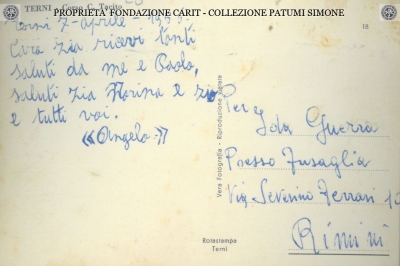 PROPRIETÀ FONDAZIONE CARIT - COLLEZIONE PATUMI SIMONE
TERNI - Corso C. Tacito
18
Terni 7-aprile-1953.
Cara zia ricevi tanti
saluti da me e Paolo,
saluti zia Norina e zio
e tutti voi.
«Angela»
Vera Fotografia - Riproduzione vietata
Rotostampa
Terni
Ida Guerra
Presso Fusaglia
Via Severino Ferrari
Rimini